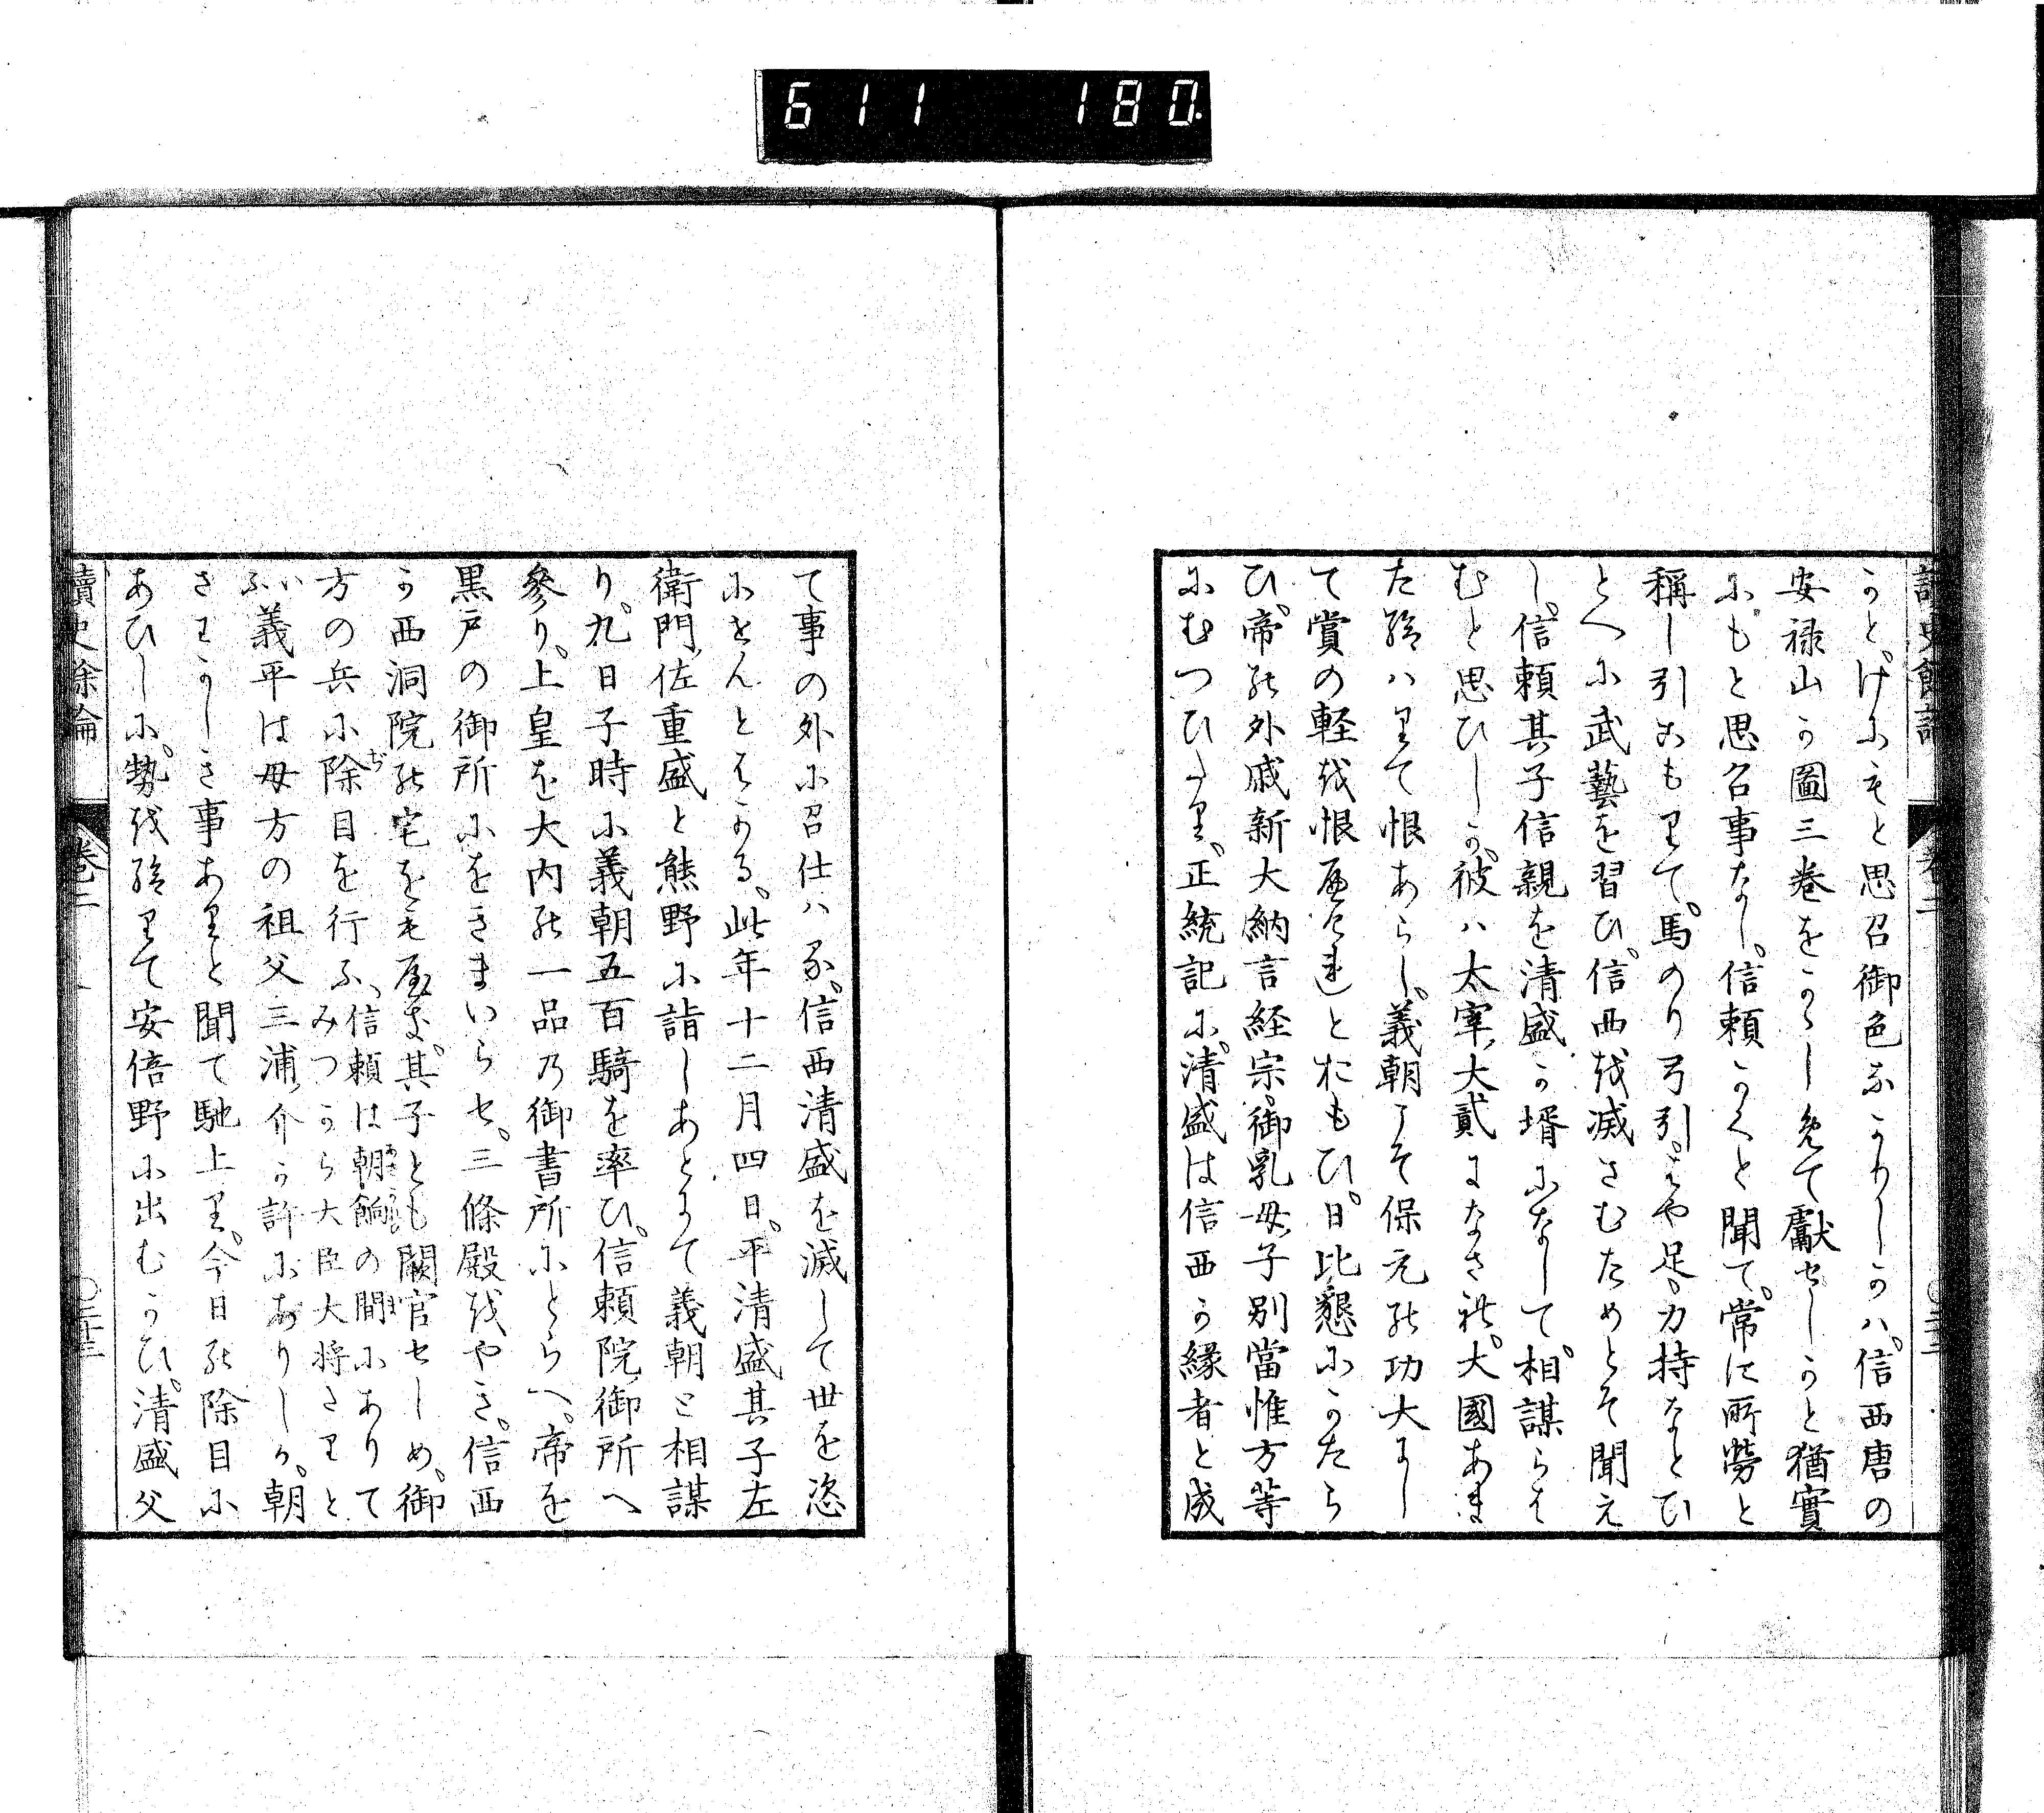 611 180
讀史餘論 卷二
かと、げにもと思召御色なかりしかハ、信西唐の
安禄山の圖三巻をかゝし免て獻せしかと猶實
にもと思召事なし、信頼かくと聞て、常に所勞と
稱し引こもりて、馬のり弓引、はや足、力持なとひ
とへに武藝を習ひ、信西を滅さむためとそ聞え
し、信頼其子信親を清盛の壻になして、相謀らは
むと思ひしか、彼ハ太宰大貳になされ、大國あま
た給ハりて恨あらし、義朝こそ保元の功大にし
て賞の軽を恨へけれとおもひ、日比懇にかたら
ひ、帝の外戚新大納言経宗、御乳母子別當惟方等
にむつひたり、正統記に、清盛は信西か縁者と成
て事の外に召仕ハる、信西清盛を滅して世を恣
にせんとはかる、此年十二月四日、平清盛其子左
衛門佐重盛と熊野に詣しあとにて義朝と相謀
り、九日子時に義朝五百騎を率ひ、信頼院御所へ
參り、上皇を大内の一品乃御書所にとらへ、帝を
黒戸の御所にをきまいらせ、三條殿をやき、信西
か西洞院の宅をも燒す、其子とも闕官せしめ、御
方の兵に除目を行ふ、信頼は朝餉の間にありて
みつから大臣大将さりと
いふ義平は母方の祖父三浦介か許にありしか、朝
さわかしき事ありと聞て馳上り、今日の除目に
あひしに、勢を給りて安倍野に出むかひ、清盛父
讀史餘論 卷二 〇二十三